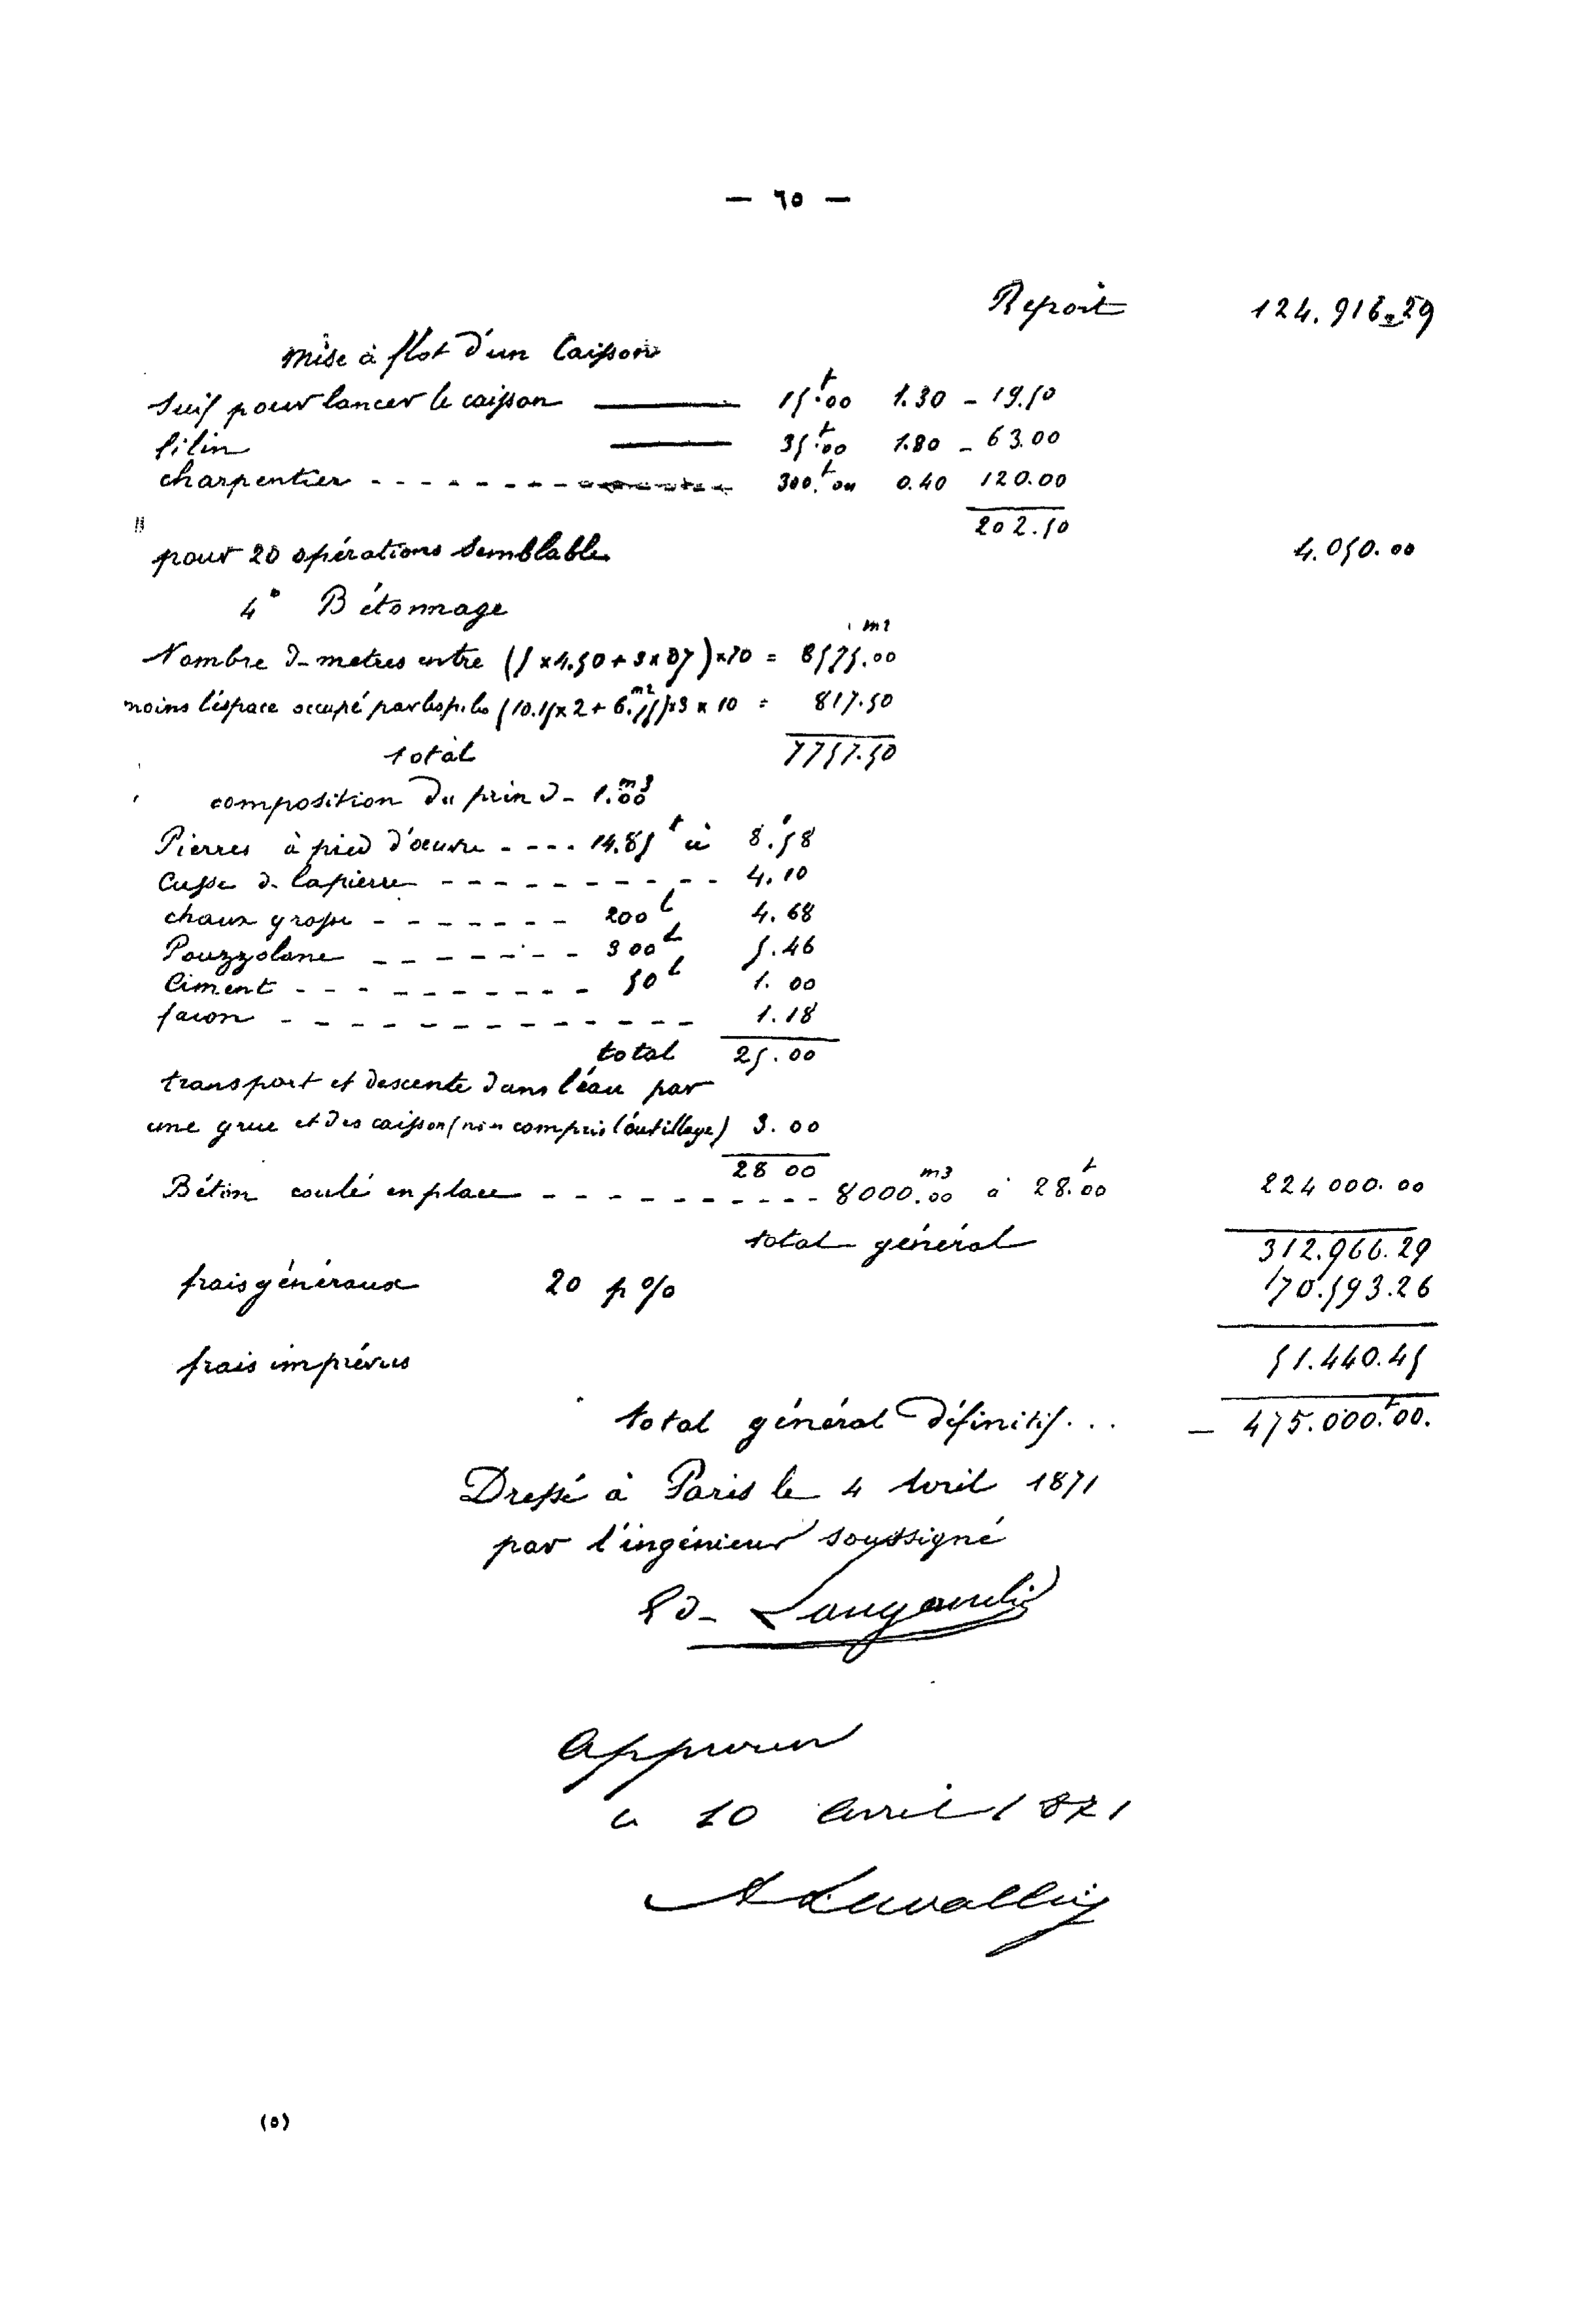 — ٦٥ —
Report 124.916.29
Mise à flot d'un Caisson
Suif pour lancer le caisson 15.00 1.30 - 19.50
filin 35.00 1.80 - 63.00
charpentier - - - - - - - 300.00 0.40 120.00
202.50
pour 20 opérations semblables 4.050.00
4° Bétonnage
Nombre de metres entre ×10 = 8575.00 m2
moins l'éspace occupé par les piles (10.15×2 + 6. )×3 × 10 = 817.50
total 7757.50
composition du prix de 1.00 m3
Pierres à pied d'œuvre - - - - 14.85 à 8.58
Casse de la pierre - - - - - - - - - - 4.10
chaux grasse - - - - - - - 200 l 4.68
Pouzzolane - - - - - - - 300 l 5.46
Ciment - - - - - - - - - - 50 l 1.00
façon - - - - - - - - - - - - - 1.18
total 25.00
transport et descente dans l'éau par
une grue et des caisson (non compris l'outillage) 3.00
28 00
Béton coulé en place - - - - - - - - - - 8000.00 m3 à 28.00 f 224 000.00
total général 312.966.29
frais généraux 20 p % 170.593.26
frais imprévus 51.440.45
total général définitif... — 475.000.00.
Dressé à Paris le 4 Avril 1871
par l'ingénieur soussigné
Ed-
Approuvé
le 10 Avril 1871
A Lavalley
(٥)